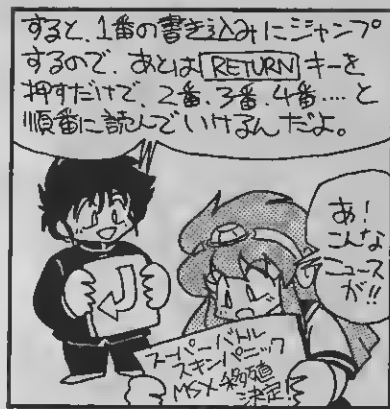 すると、1番の書き込みにジャンプ
するので、あとは RETURN キーを
押すだけで、2番、3番、4番…と
順番に読んでいけるんだよ。
あ!
こんな
ニュース
が!!
スーパーバトル
スキンパニック
MSX移植
決定!